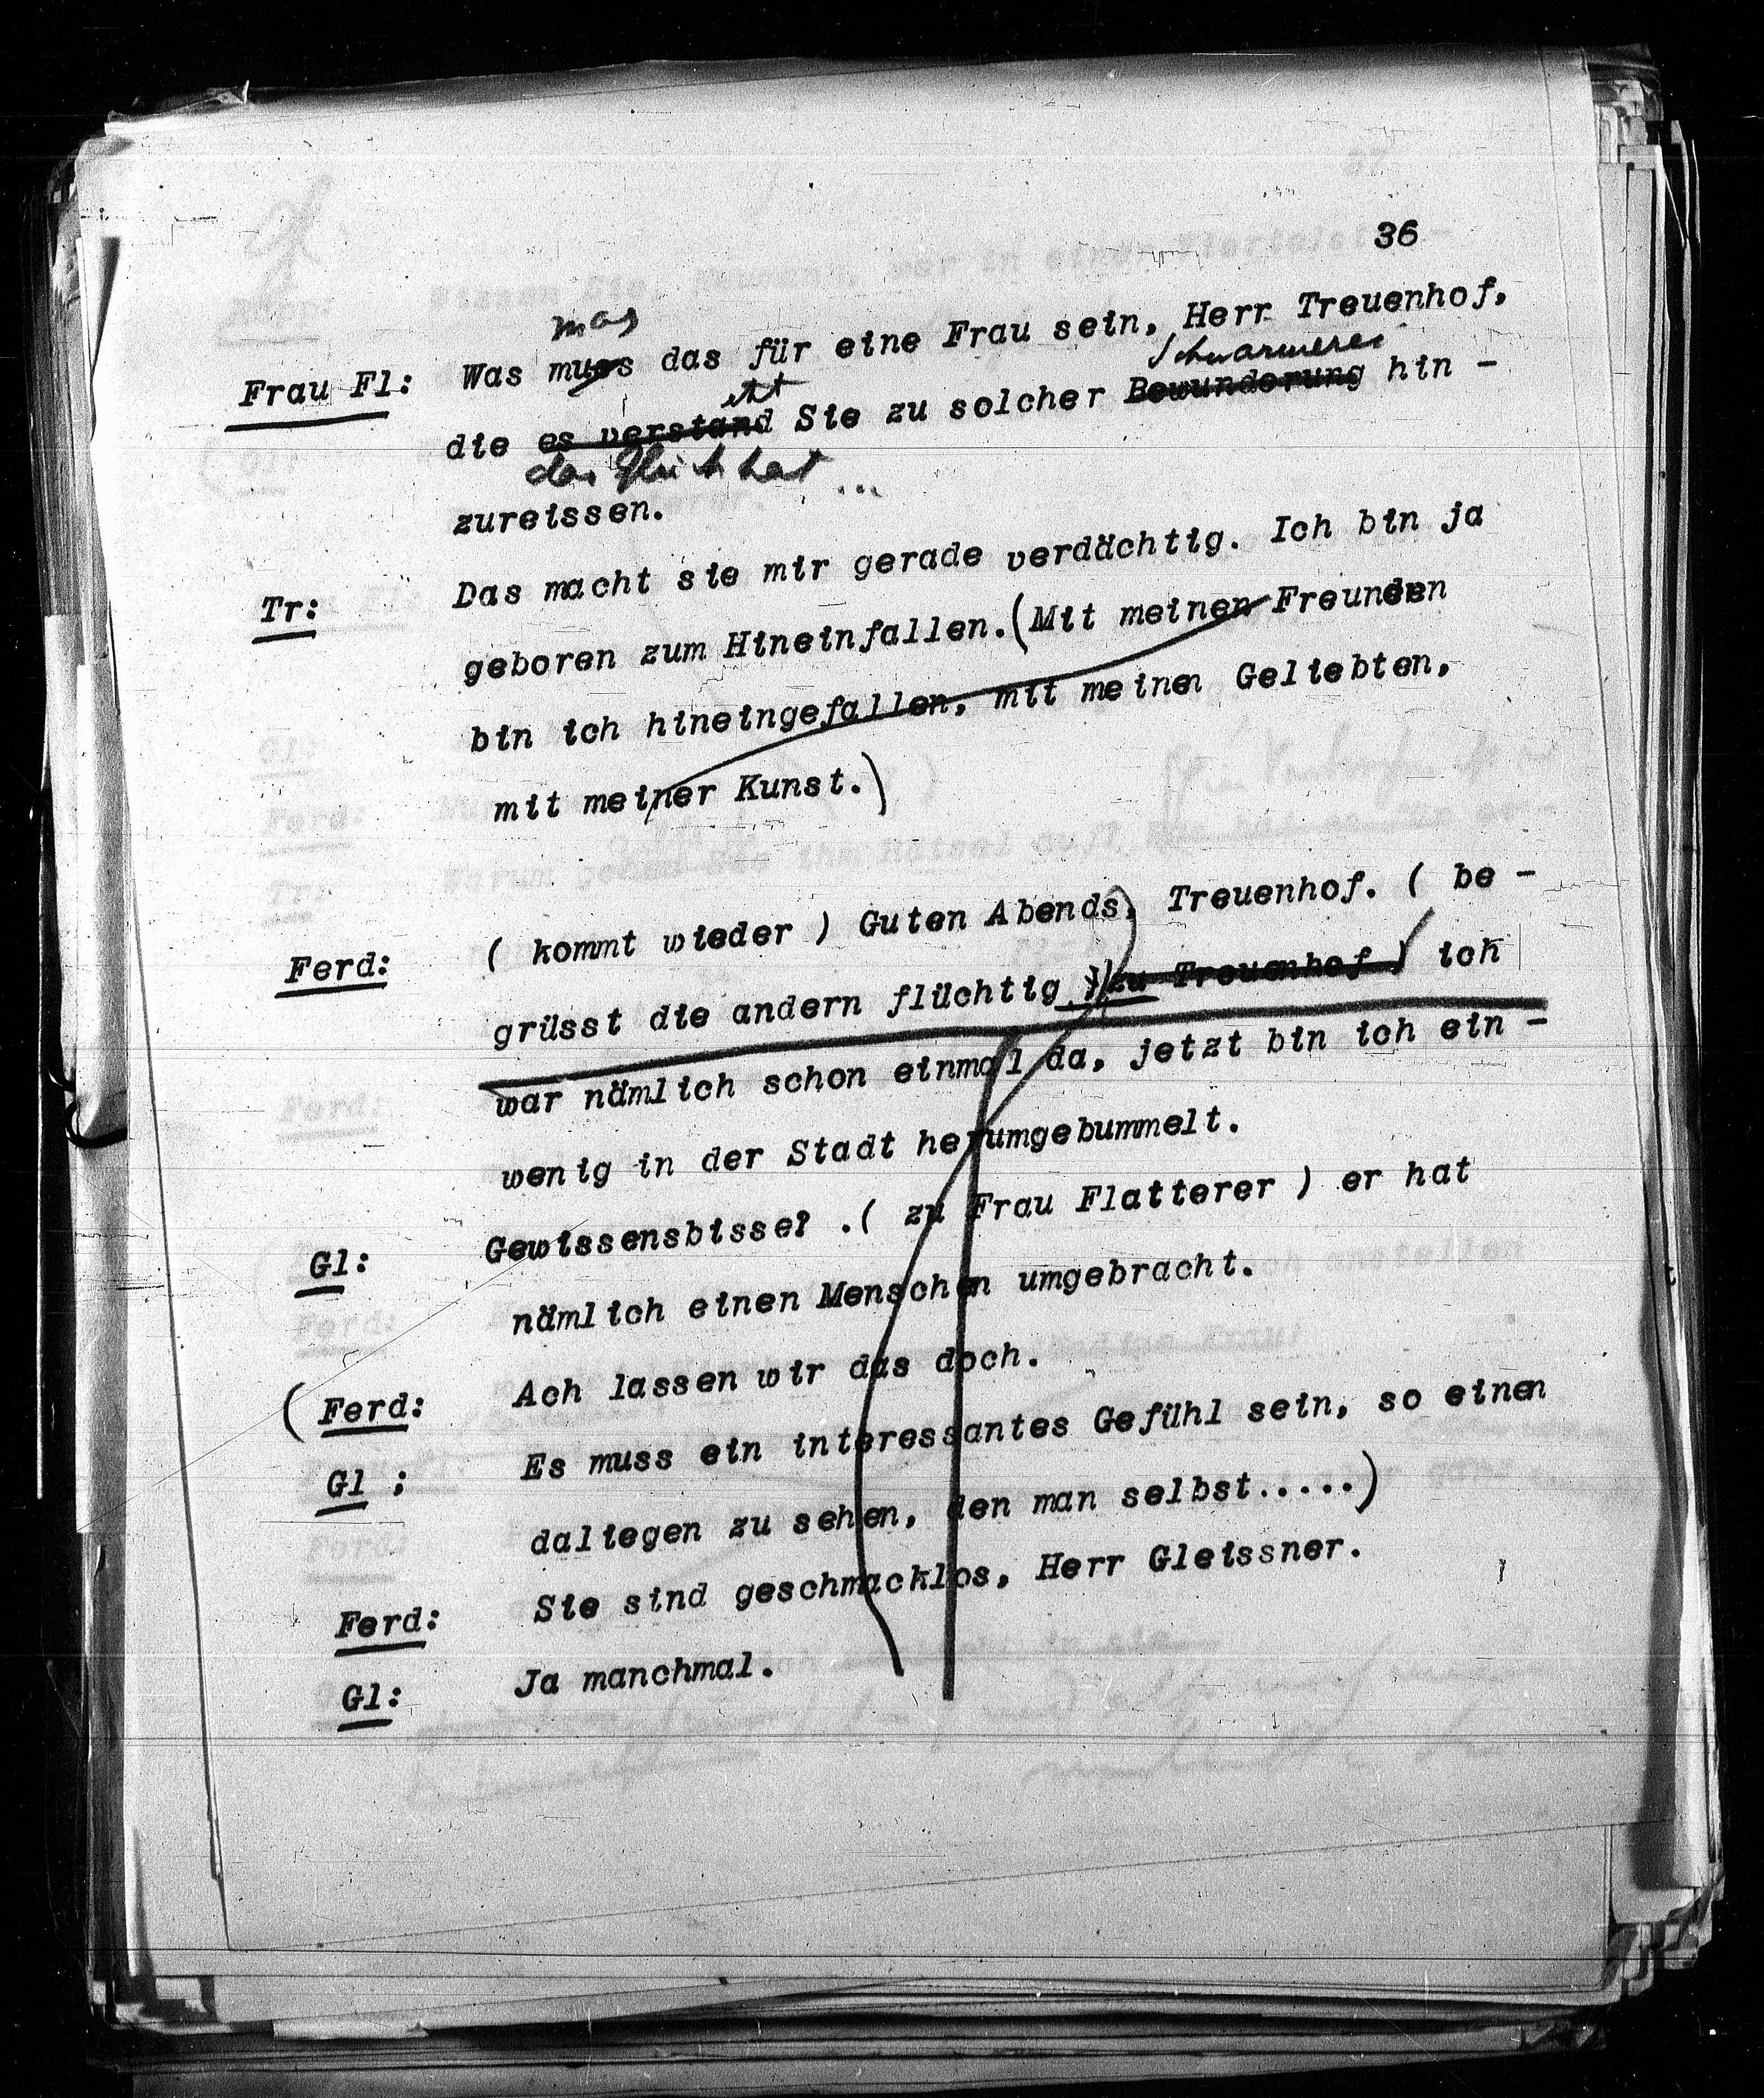 36
mag
Frau Fl: Was muss das für eine Frau sein, Herr Treuenhof,
Schwärmerei
die es verstand Sie zu solcher Bewunderung hin -
das Glück hat ...
zureissen.
Tr: Das macht sie mir gerade verdächtig. Ich bin ja
geboren zum Hineinfallen. (Mit meinen Freunden
bin ich hineingefallen, mit meinen Geliebten,
mit meiner Kunst.)
Ferd: ( kommt wieder ) Guten Abends, Treuenhof. ( be -
grüsst die andern flüchtig ) (zu Treuenhof ) ich
war nämlich schon einmal da, jetzt bin ich ein -
wenig in der Stadt herumgebummelt.
Gl: Gewissensbisse? .( zu Frau Flatterer ) er hat
nämlich einen Menschen umgebracht.
( Ferd: Ach lassen wir das doch.
Gl : Es muss ein interessantes Gefühl sein, so einen
daliegen zu sehen, den man selbst.....)
Ferd: Sie sind geschmacklos, Herr Gleissner.
Gl: Ja manchmal.